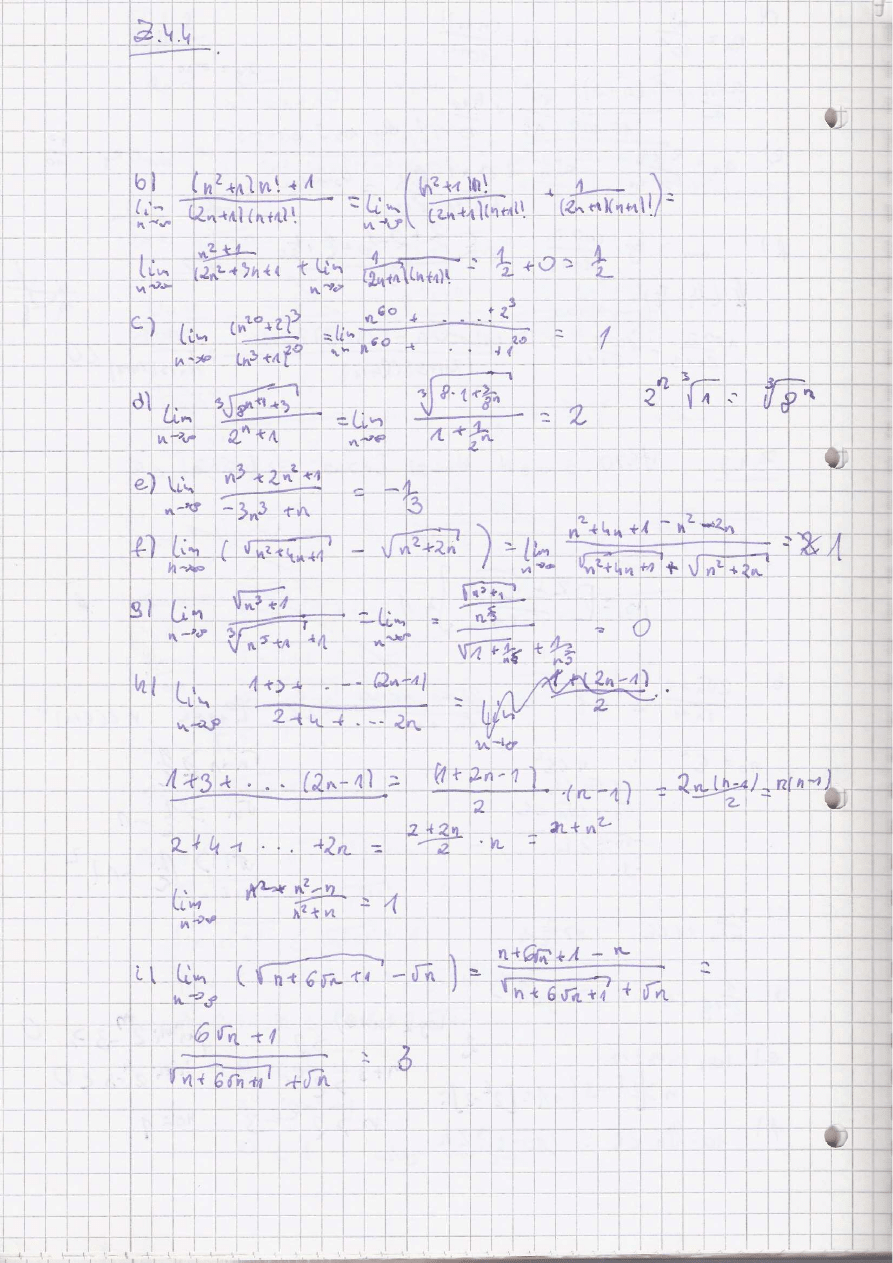 Z.4.4
b) lim n→∞ ((n²+1)n! + 1)/((2n+1)(n+1)!) = lim n→∞ ( (n²+1)n!/((2n+1)(n+1)!) + 1/((2n+1)(n+1)!) ) =
lim n→∞ (n²+1)/(2n²+3n+1 + lim n→∞ 1/((2n+1)(n+1)!) = 1/2 + 0 = 1/2
c) lim n→∞ (n²⁰+2)³/(n³+1)²⁰ = lim n→∞ (n⁶⁰ + .... + 2³)/(n⁶⁰ + ... + 1²⁰) = 1
d) lim n→∞ ∛(8ⁿ⁺¹+3)/(2ⁿ+1) = lim n→∞ ∛(8·1+3/8ⁿ)/(1+1/2ⁿ) = 2 2ⁿ ∛1 = ∛8ⁿ
e) lim n→∞ (n³+2n²+1)/(-3n³+n) = -1/3
f) lim n→∞ ( √(n²+4n+1) - √(n²+2n) ) = lim n→∞ (n²+4n+1-n²-2n)/(√(n²+4n+1) + √(n²+2n)) = 1
g) lim n→∞ √(n³+1)/(∛(n⁵+1)+1) = lim n→∞ = (√(n³+1)/n^(5/3))/(√(1+1/n⁵) + 1/n^(5/3)) = 0
h) lim n→∞ (1+3+ .... (2n-1))/(2+4+ ... 2n) = lim n→∞ (1+(2n-1))/2 .
1+3+ ... (2n-1) = (1+2n-1)/2 · (n-1) = 2n(n-1)/2 = n(n-1)
2+4+ ... +2n = (2+2n)/2 · n = n+n²
lim n→∞ (n²-n)/(n²+n) = 1
i) lim n→∞ (√(n+6√n+1) - √n) = (n+6√n+1-n)/(√(n+6√n+1) + √n) =
(6√n+1)/(√(n+6√n+1) + √n) = 3